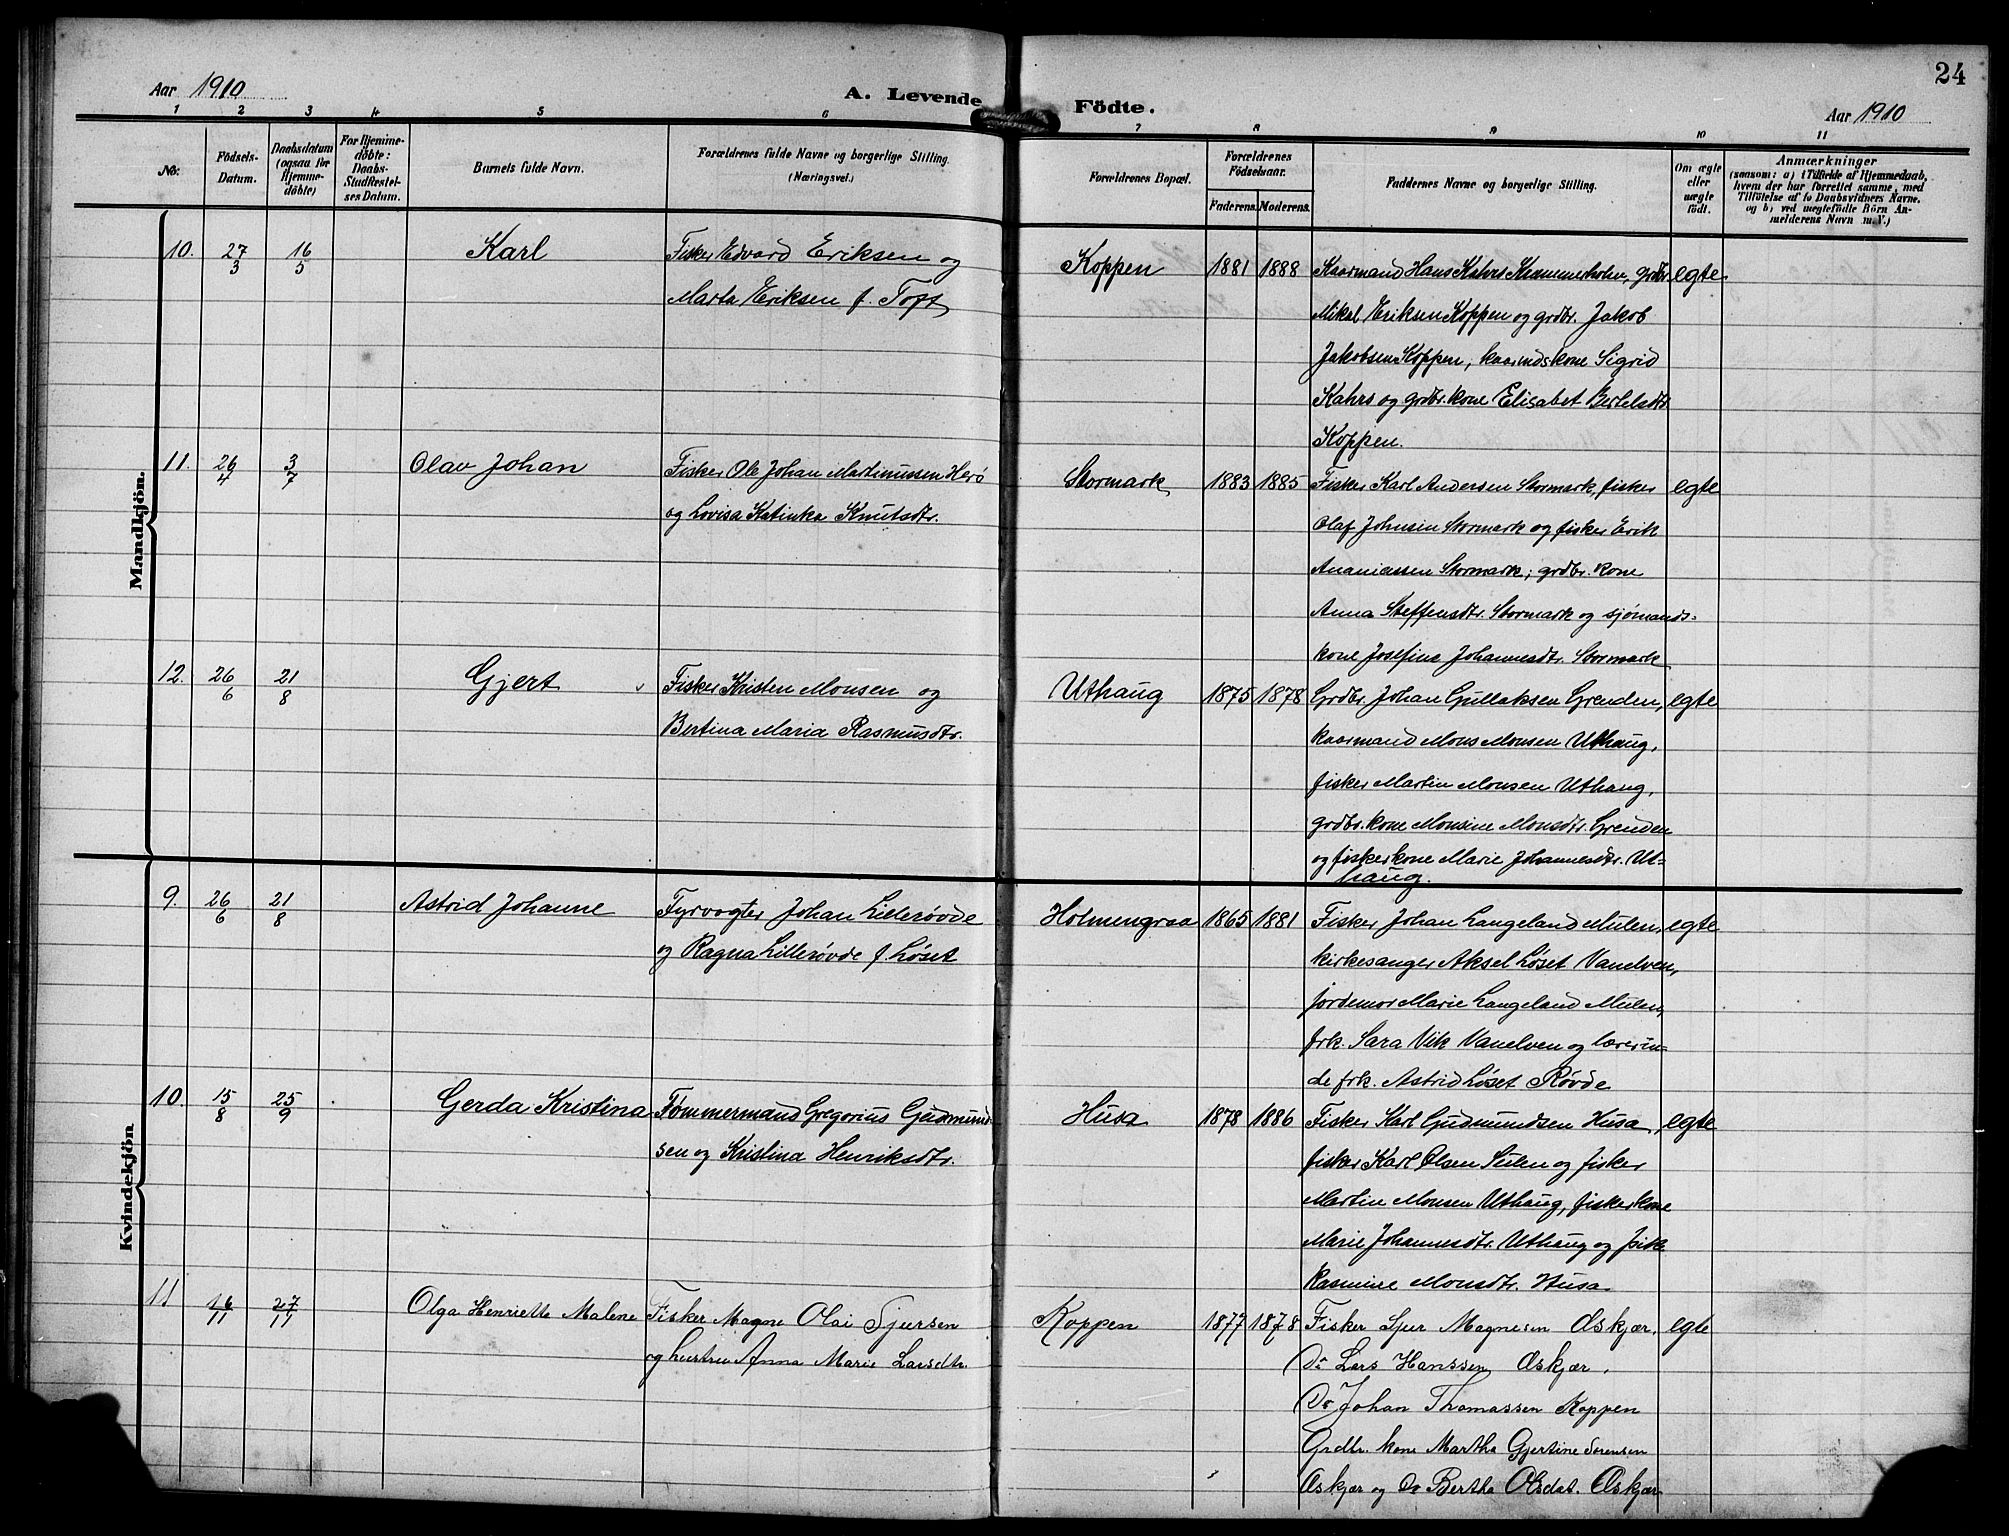 24
Aar 1910
A. Levende Födte.
Aar 1910
1 2 3 4 5 6 7 8 9 10 11
No.
Födsels-Datum.
Daabsdatum (ogsaa for Hjemme-döbte)
For Hjemme-döbte: Daabs-Stadfæstel-ses Datum.
Barnets fulde Navn.
Forældrenes fulde Navne og borgerlige Stilling. (Næringsvei.)
Forældrenes Bopæl.
Forældrenes Födselsaar.
Faderens. Moderens.
Faddernes Navne og borgerlige Stilling.
Om ægte eller uægte født.
Anmærkninger
(saasom: a) i Tilfælde af Hjemmedaab, hvem der har forrettet samme, med Tilföielse af to Daabsvidners Navne, og b) ved uægtefödte Börn Anmelderens Navn m. V.)
Mandkjön.
10. 27/3 16/5 Karl Fisker Edvard Eriksen og Koppen 1881 1888 Kaarmand Hans Kahrs Kammerholm, grdbr. egte
Marta Eriksen f. Toft Mikal Eriksen Koppen og grdbr. Jakob
Jakobsen Koppen, kaarmdskone Sigrid
Kahrs og grdbr. kone Elisabet Bertelsdtr.
Koppen.
11. 26/4 3/7 Olav Johan Fisker Ole Johan Martinussen Herö Stormark 1883 1885 Fisker Karl Andersen Stormark, fisker egte
og Lovisa Katinka Knutsdtr. Olaf Johnsen Stormark og fisker Erik
Ananiassen Stormark; grdbr. kone
Anna Steffensdtr. Stormark og sjömands-
kone Josefine Johannesdtr. Stormark
12. 26/6 21/8 Gjert Fisker Kristen Monsen og Uthaug 1875 1878 Grdbr. Johan Gullaksen Grenden, egte
Bertina Maria Rasmusdtr. kaarmand Mons Monsen Uthaug,
fisker Martin Monsen Uthaug,
grdbr. kone Monsine Monsdtr. Grenden
og fiskerkone Marie Johannesdtr. Ut-
haug.
Kvindekjön
9. 26/6 21/8 Astrid Johanne Fyrvogter Johan Lillerövde Holmengraa 1865 1881 Fisker Johan Langeland Mulen, egte
og Ragna Lillerövde f. Löset kirkesanger Aksel Löset Vanelven,
jordemor Marie Langeland Mulen,
frk. Sara Vik Vanelven og lærerin-
de frk. Astrid Löset Rövde
10. 15/8 25/9 Gerda Kristina Tömmermand Gregorius Gudmund- Husa 1878 1886 Fisker Karl Gudmundsen Husa, egte
sen og Kristina Henriksdtr. fisker Karl Olsen Seilen og fisker
Martin Monsen Uthaug, fiskerkone
Marie Johannesdtr. Uthaug og pike
Rasmine Monsdtr. Husa
11 16/11 27/11 Olga Henriette Malene Fisker Magne Olai Sjursen Koppen 1877 1878 Fisker Sjur Magnesen Öskjær, egte
og hustru Anna Marie Larsdtr. Do Lars Hanssen Öskjær,
Do Johan Thomassen Koppen
Grdbr. kone Martha Gjertine Sörensen
Öskjær og Do Bertha Olsdat. Öskjær